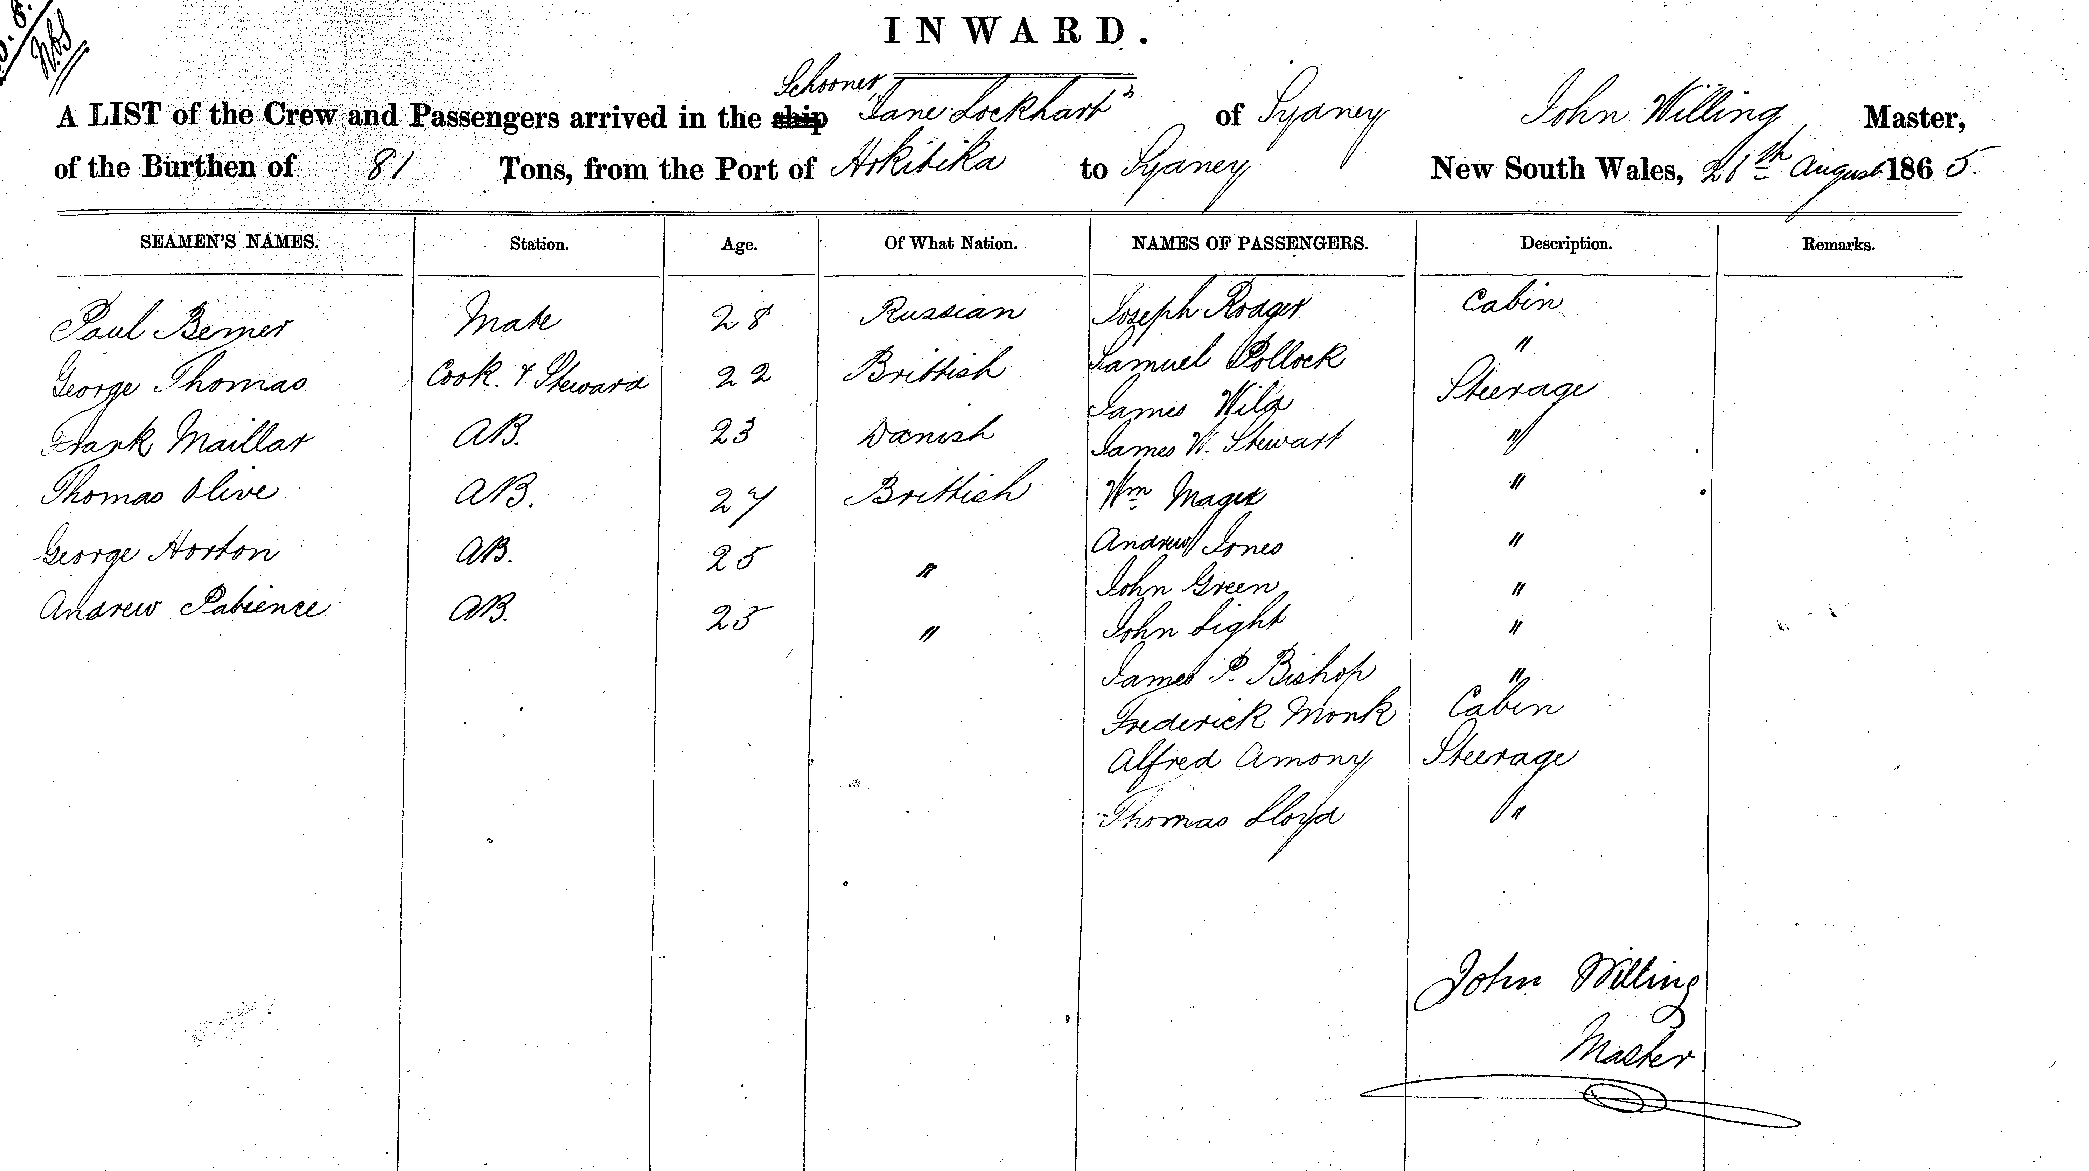 INWARD.
Schooner
A LIST of the Crew and Passengers arrived in the ship "Jane Lockhart" of Sydney John Willing Master,
of the Burthen of 81 Tons, from the Port of Hokitika to Sydney New South Wales, August 1865.
SEAMEN'S NAMES. Station. Age. Of What Nation. NAMES OF PASSENGERS. Description. Remarks.
Paul Berner Mate 28 Russian Joseph Rodger Cabin
George Thomas Cook & Steward 22 Brittish Samuel Pollock "
James Wild Steerage
Frank Maillar AB. 23 Danish James W. Stewart "
Thomas Olive AB. 27 Brittish Wm Mager "
George Horton AB. 25 " Andrew Jones "
John Green "
Andrew Patience AB. 25 " John Light "
James P. Bishop "
Frederick Monk Cabin
Alfred Amony Steerage
Thomas Lloyd "
John Willing
Master